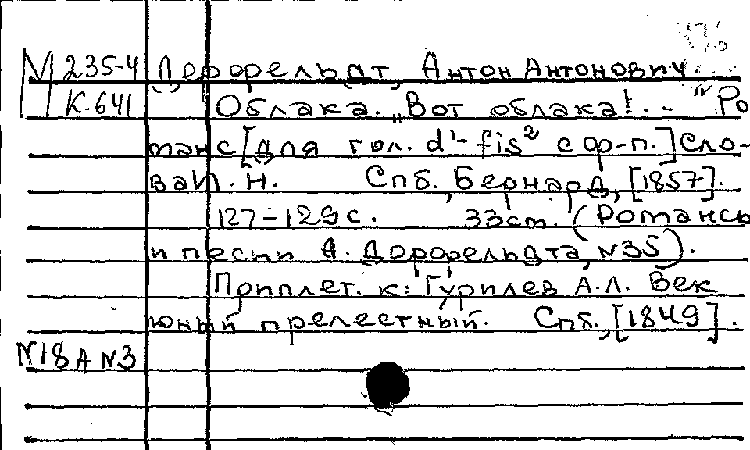 М 235-4 Дерфельдт, Антон Антонович.
К-641 Облака. „Вот облака!.. " Ро
манс [для гол. d¹- fis² с ф-п.] Сло-
ва И. Н. Спб., Бернард, [1857].
127-129 с. 33 см. (Романсы
и песни А. Дерфельдта, N35).
Припл. к: Гурилев А.Л. Век
юный прелестный. Спб., [1849].
N18A N3